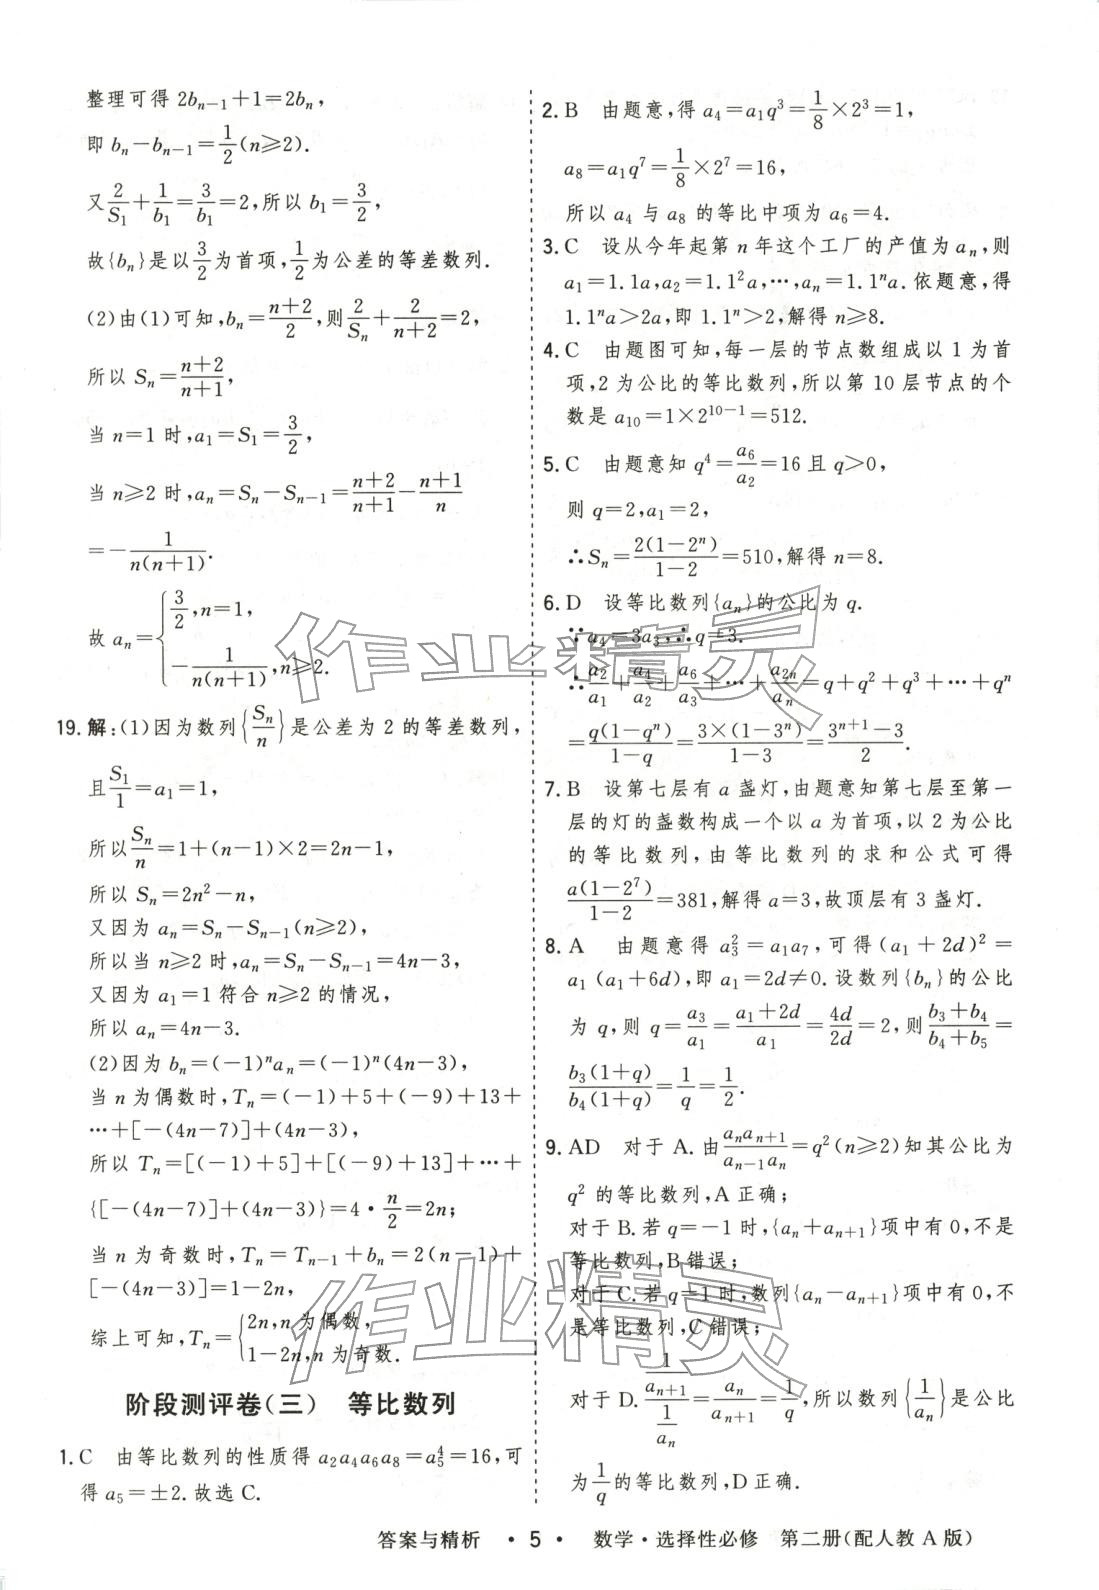 整理可得 2bₙ₋₁+1=2bₙ,
即 bₙ-bₙ₋₁=1/2(n≥2).
又2/S₁+1/b₁=3/b₁=2,所以 b₁=3/2,
故{bₙ}是以3/2为首项,1/2为公差的等差数列.
(2)由(1)可知,bₙ=(n+2)/2,则2/Sₙ+2/(n+2)=2,
所以 Sₙ=(n+2)/(n+1),
当 n=1 时,a₁=S₁=3/2,
当 n≥2 时,aₙ=Sₙ-Sₙ₋₁=(n+2)/(n+1)-(n+1)/n
=-1/(n(n+1)).
故 aₙ={3/2,n=1,
-1/(n(n+1)),n≥2.
19. 解:(1)因为数列{Sₙ/n}是公差为 2 的等差数列,
且S₁/1=a₁=1,
所以Sₙ/n=1+(n-1)×2=2n-1,
所以 Sₙ=2n²-n,
又因为 aₙ=Sₙ-Sₙ₋₁(n≥2),
所以当 n≥2 时,aₙ=Sₙ-Sₙ₋₁=4n-3,
又因为 a₁=1 符合 n≥2 的情况,
所以 aₙ=4n-3.
(2)因为 bₙ=(-1)ⁿaₙ=(-1)ⁿ(4n-3),
当 n 为偶数时,Tₙ=(-1)+5+(-9)+13+
…+[-(4n-7)]+(4n-3),
所以 Tₙ=[(-1)+5]+[(-9)+13]+…+
{[-(4n-7)]+(4n-3)}=4·n/2=2n;
当 n 为奇数时,Tₙ=Tₙ₋₁+bₙ=2(n-1)+
[-(4n-3)]=1-2n,
综上可知,Tₙ={2n,n 为偶数,
1-2n,n 为奇数.
阶段测评卷(三) 等比数列
1. C 由等比数列的性质得 a₂a₄a₆a₈=a₅⁴=16,可
得 a₅=±2.故选 C.
2. B 由题意,得 a₄=a₁q³=1/8×2³=1,
a₈=a₁q⁷=1/8×2⁷=16,
所以 a₄ 与 a₈ 的等比中项为 a₆=4.
3. C 设从今年起第 n 年这个工厂的产值为 aₙ,则
a₁=1.1a,a₂=1.1²a,…,aₙ=1.1ⁿa.依题意,得
1.1ⁿa>2a,即 1.1ⁿ>2,解得 n≥8.
4. C 由题图可知,每一层的节点数组成以 1 为首
项,2 为公比的等比数列,所以第 10 层节点的个
数是 a₁₀=1×2¹⁰⁻¹=512.
5. C 由题意知 q⁴=a₆/a₂=16 且 q>0,
则 q=2,a₁=2,
∴Sₙ=2(1-2ⁿ)/(1-2)=510,解得 n=8.
6. D 设等比数列{aₙ}的公比为 q.
∵a₄=3a₃,∴q=3.
∴a₂/a₁+a₄/a₂+a₆/a₃+…+a₂ₙ/aₙ=q+q²+q³+…+qⁿ
=q(1-qⁿ)/(1-q)=3×(1-3ⁿ)/(1-3)=(3ⁿ⁺¹-3)/2.
7. B 设第七层有 a 盏灯,由题意知第七层至第一
层的灯的盏数构成一个以 a 为首项,以 2 为公比
的等比数列,由等比数列的求和公式可得
a(1-2⁷)/(1-2)=381,解得 a=3,故顶层有 3 盏灯.
8. A 由题意得 a₃²=a₁a₇,可得(a₁+2d)²=
a₁(a₁+6d),即 a₁=2d≠0.设数列{bₙ}的公比
为 q,则 q=a₃/a₁=(a₁+2d)/a₁=4d/2d=2,则(b₃+b₄)/(b₄+b₅)=
b₃(1+q)/(b₄(1+q))=1/q=1/2.
9. AD 对于 A.由aₙaₙ₊₁/(aₙ₋₁aₙ)=q²(n≥2)知其公比为
q² 的等比数列,A 正确;
对于 B.若 q=-1 时,{aₙ+aₙ₊₁}项中有 0,不是
等比数列,B 错误;
对于 C.若 q=1 时,数列{aₙ-aₙ₊₁}项中有 0,不
是等比数列,C 错误;
对于 D.(1/aₙ₊₁)/(1/aₙ)=aₙ/aₙ₊₁=1/q,所以数列{1/aₙ}是公比
为1/q的等比数列,D 正确.
答案与精析 · 5 · 数学·选择性必修 第二册(配人教 A 版)
作业精灵
作业精灵